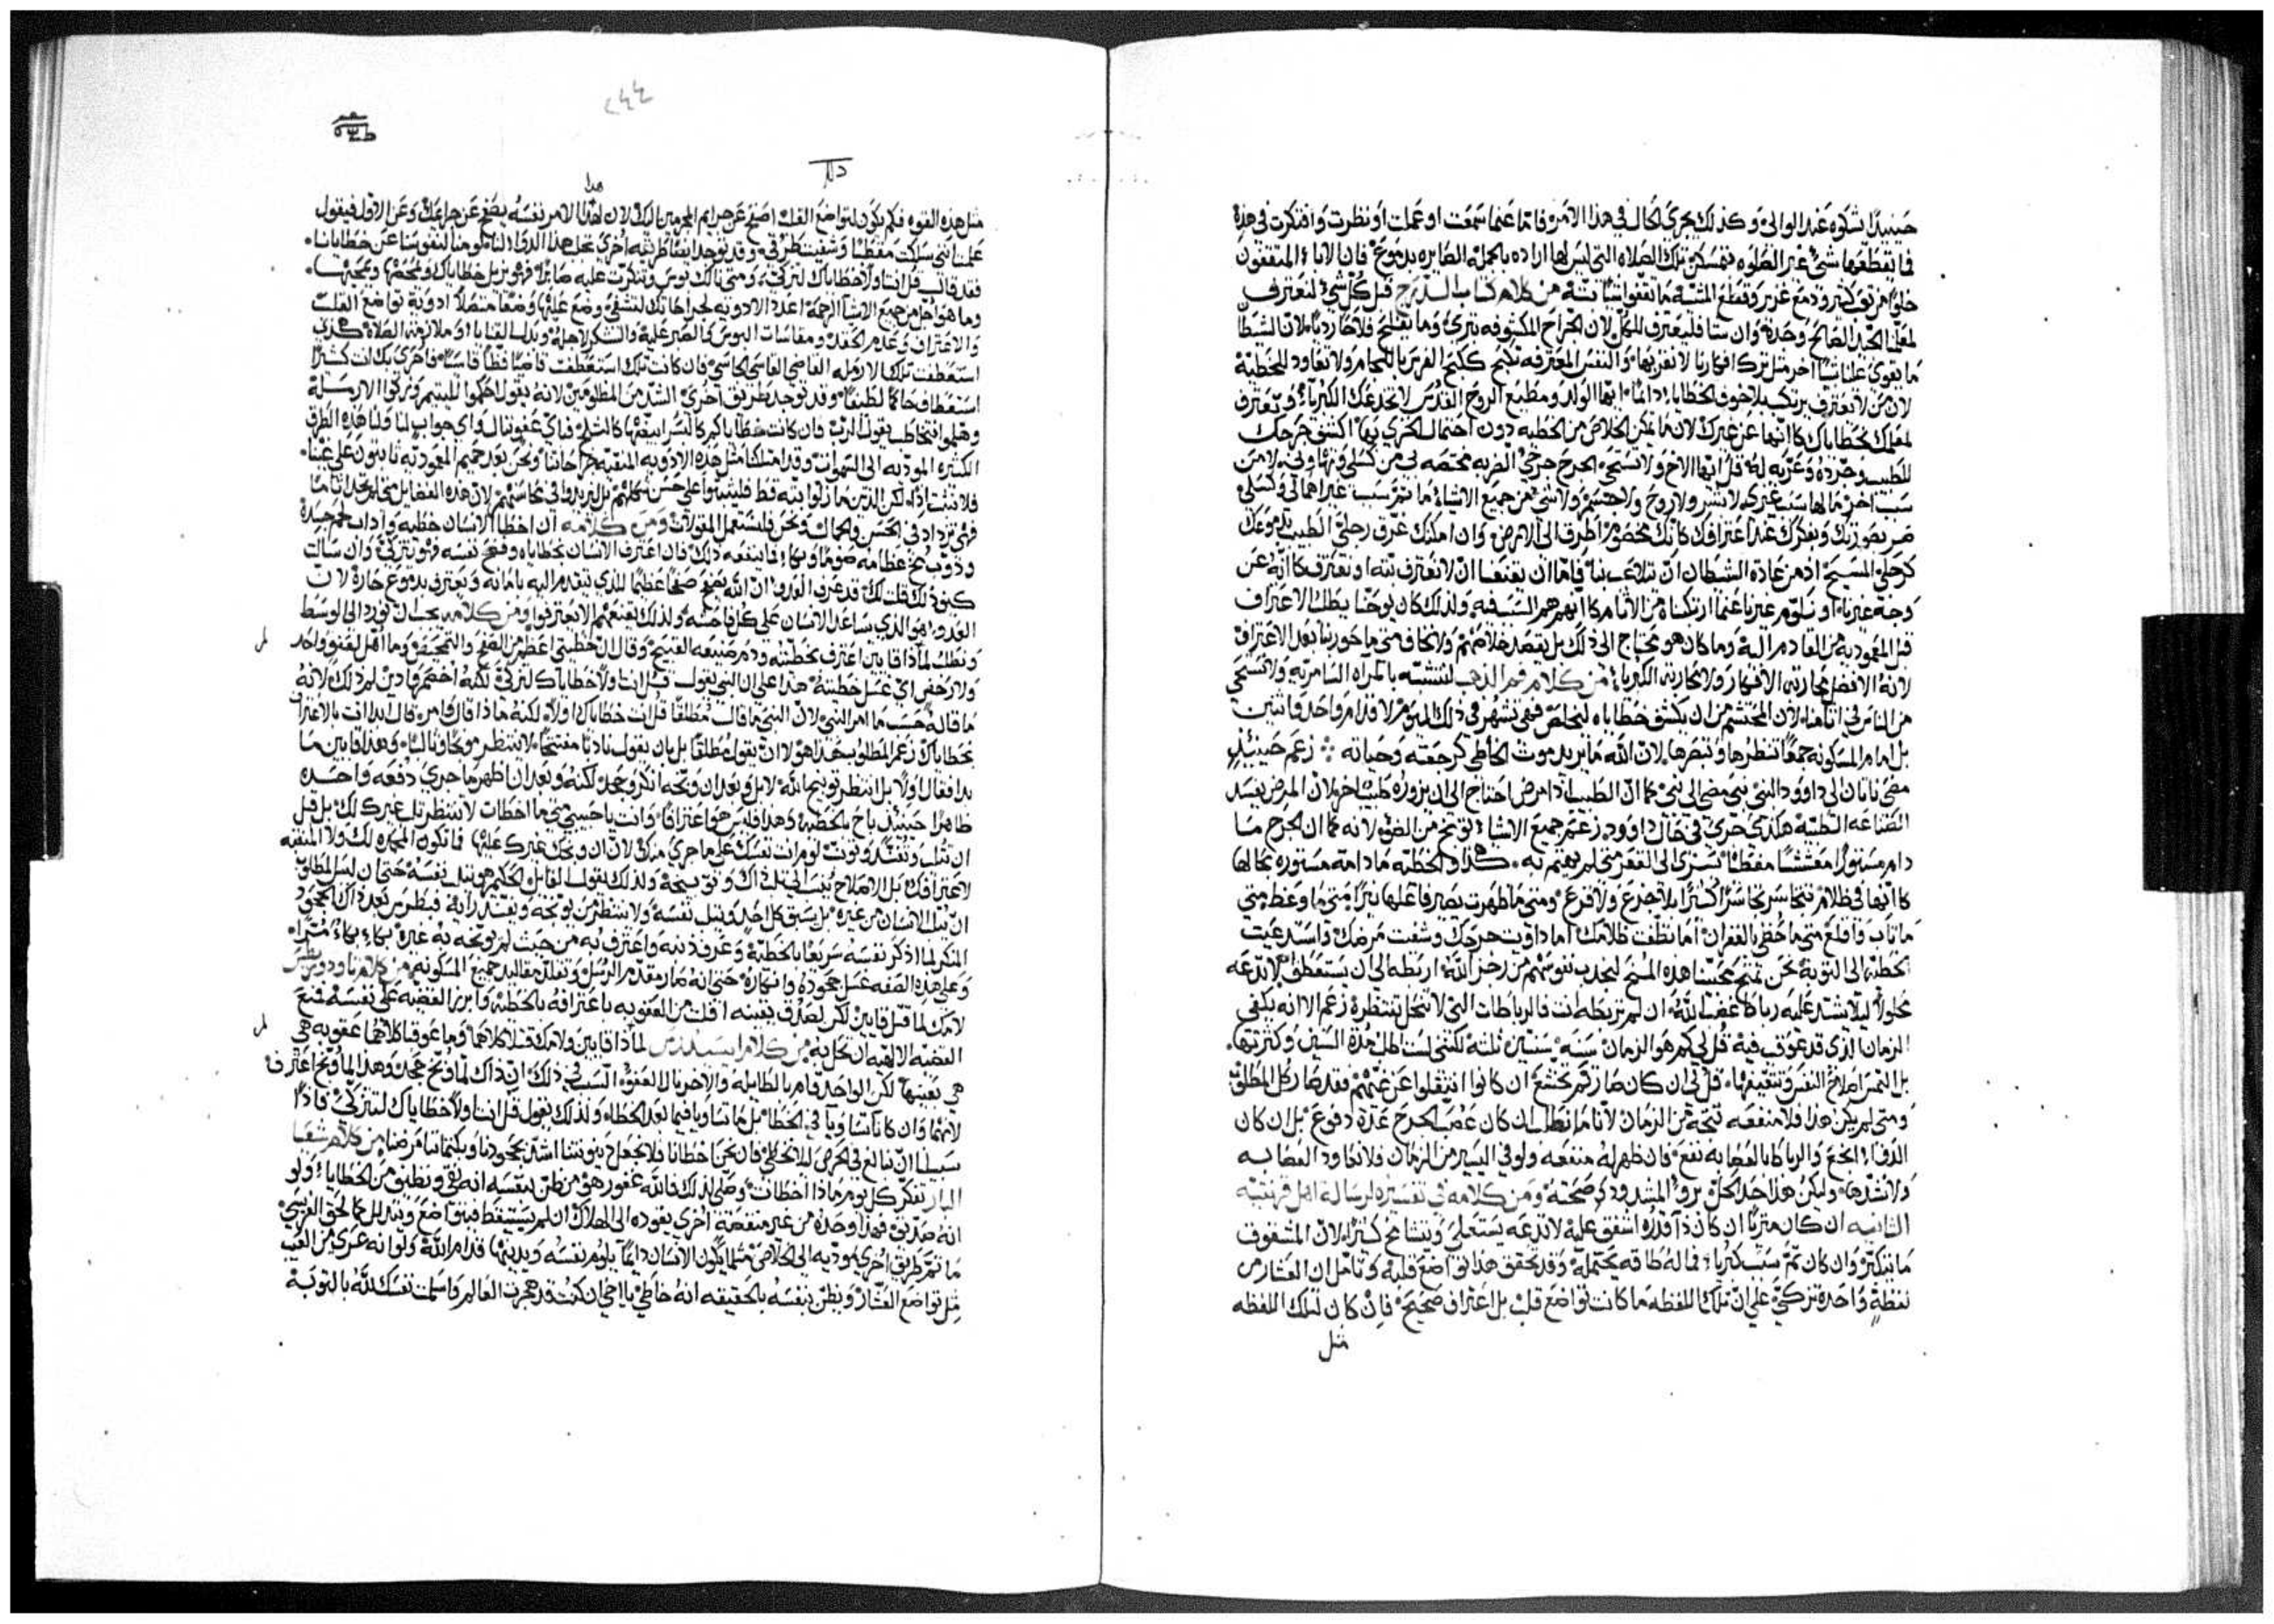 حينيدًا شكوه عند الوالي وكذلك يجري الحال في هذا الامر فاما عنما سمعت او عملت او نظرت وافتكرت في هذه
فما يقطعها شي غير الصلوه فتمسكن تلك الصلاه التي ليس لها اراده بالجمله الصايره بدموع فان الاباء المتقفون
خلوا من توكثير ودمع غزير وقطع المشيه ما اتقفوا شيا تنته من كلام كتاب الدرج قبل كل شي لنعترف
لمعلمنا الجيد الصالح وحده وان شا فليعترف للكل لان الجراح المكشوفه تبري وما تفلح فلاحًا رديا لان الشيطان
ما يقوي علينا شيا اخر مثل ترك افكارنا لا نعتر بها والنفس المعترفه تكبح ككبح الفرس باللجام ولا تعاود للخطية
لان من لا يعترف يرتكب بلا خوف الخطايا دائمًا ايها الولد ومطيع الروح القدس لا تخدعك الكبرياء وتعترف
لمعلمك بخطاياك كانها عن غيرك لان ما يمكن الخلاص من الخطيه دون احتمال الخزي بها اكشف جرحك
للطبيب وجرده وعريه له قل ايها الاخ ولا تستحي الجرح جرحي الضربه مختصه بي من كسلي ونهاوني لا من
سبب اخر ما لها سبب غيري لا بشر ولا روح ولا جسم ولا شي من جميع الاشياء ما ثم سبب غير اهمالي وكسلي
صر بصورتك وبفكرك عند اعترافك كانك محصور اطرق الى الارض وان امكنك غرق رجلي الطبيب بدموعك
كرجلي المسيح اذ من عادة الشيطان ان يتلاعب بنا فاما ان يقنعنا ان لا نعترف بته او نعترف كانه عن
وجه غيرنا او نلوم غيرنا عنما ارتكبناه من الاثام كانهم هم السبب فيه ولذلك كان يوحنا يطلب الاعتراف
قبل المعموديه من القادم اليه وما كان هو محتاج الى ذلك بل بقصد خلاصهم ولا نخاف متى ما حوربنا بعد الاعتراف
لانه الافضل محاربة الافكار ولا محاربة الكبرياء من كلام فم الذهب لنتشبه بالمراه السامريه ولا نستحي
من الناس في اثامنا لان المحتشم من ان يكشف خطاياه ليخلص فهو يشهر في ذلك اليوم لا قدام واحد واثنين
بل امام المسكونه جمعًا تنظرها وتبصرها لان الله ما يريد موت الخاطي كرجعته وحياته زعم حينيذ
مضى ناثان الى داوود النبي نبي مضى الى نبي كما ان الطبيب اذا مرض احتاج الى ان يزوره طبيب اخر لان المرض يفسد
الصناعه الطبيه هكذي جري في حال داوود زعم جميع الاشيا توبخ من الضوء لانه كما ان الجرح ما
دام مستورًا مغششًا مقطبًا يسري الى القعر متى لم يهتم به كذلك الخطيه ما دامت مستوره بحالها
كانها في ظلام تتجاسر بتجاسر اكثر بلا جزع ولا فزع ومتى ما ظهرت يصير فاعلها نيرًا متى ما وعظ متى
ما تاب واقلع متى ما حظي بالغفران اما نظفت ظلامك اما داويت جرحك وشفيت مرضك واستدعيت
الخطيه الى التوبه نحن نمنح محبتنا هذه المنح لنجذب نفوسهم من رجز الله اربطه الى ان يستعطف لا تدعه
محلولًا ليلا يشتد عليه رباط غضب الله ان لم تربطه انت فالرباطات التي لا تنحل تنتظره زعم الا انه يكفي
الزمان الذي قد عوقب فيه قل لي كم هو الزمان سنه سنتين ثلثه لكنني لست اطلب مدة السنين وكثرتها
بل التمس اصلاح النفس وتثقيفها قل لي ان كان صار لهم تخشع ان كانوا انتقلوا عن غيهم فقد صار كل المطلوب
ومتى لم يكن هذا فلا منفعه نتجة من الزمان لانا ما نطلب ان كان عصب الجرح عدة دفوع بل ان كان
الدواء انجع والرباط بالعصابه نفع فان ظهر له منفعه ولو في اليسير من الزمان فلا نعاود العصابه
ولا نشدها وليكن هذا حد الحل برو المشدود وصحته ومن كلامه في تفسيره لرسالة اهل قرنثيه
الثانيه ان كان متريًا ان كان ذا قدره اشفق عليه لا تدعه يستعلي ويتشامخ كثيرًا لان المشفوق
ما يتكبر وان كان ثم سبب كبرياء فما له طاقه يحتمله وقد تحقق هذا تواضع قلبه وتامل ان العشار من
لفظة واحدة تزكى على ان تلك اللفظه ما كانت تواضع قلب بل اعتراف صحيح فان كان لتلك اللفظه
مثل
٢٤٤
هذا
مثل هذه القوه فكم يكون لتواضع القلب اصفح عن جرايم المجرمين اليك لان هذا الامر نفسه يصفح عن جرايمك وعن الاول فيقول
علمنا انني سلكت مقطبًا وشفيت طرقه وقد يوجد ايضًا طريقه اخرى تحل هذا الدواء
فقد قال قل انت اولا خطاياك لتزكى ومتى نالك بوس وشكرت عليه صابرًا فهو يزيل خطاياك
وما هو اجل من جميع الاشيا الرحمه اعدد الادويه لجراحاتك لتشفى وضع عليها وضعًا متصلًا ادوية تواضع القلب
والاعتراف وعدم الحقد ومقاساة البوس كالصبر عليه والشكر لاجله وبذل القنايا وملازمة الصلاة هكذي
استعطفت تلك الارمله القاضي القاسي فان كانت تلك استعطفت قاضيًا فظًا قاسيًا فاحرى بك انت كثيرًا
استعطاف حاكمًا لطيفًا وقد توجد طريق اخرى الشد من المظلومين لانه يقول احكموا لليتيم وزكوا الارمله
وهلموا نتخاطب يقول الرب فان كانت خطاياكم كالقرمز ابيضها كالثلج فاي عفو لنا او اي جواب لنا ولنا هذه الطرق
الكثيره الموديه الى السموات وقد امتلكنا مثل هذه الادويه المنقيه جراحاتنا ونحن بعد حميم المعموديه ثابتون على غينا
فلا نثبت اذًا لكن الذين ما زلوا بته قط فليثبتوا على حسن حالهم بل ليزيدوا في محاسنهم لان هذه الفضايل
فهي تزداد في الحسن والجمال ونحن فلنستعمل المقولات ومن كلامه ان اخطا الانسان خطيه واذاب لحم جسده
وذوب مخ عظامه صومًا وبكاء فما ينفعه ذلك فان اعترف الانسان بخطاياه وفضح نفسه فهو يتزكى وان سالت
كيف ذلك قلت لك قد عرف العدو ان الله يصفح صفحًا عظيمًا للذي يتقدم اليه بامانه ويعترف بدموع حارة لان
العدو هو الذي يساعد الانسان على كل فاحشه ولذلك يقنعهم الا يعترفوا ومن كلامه يجب ان نورد الى الوسط
ونطلب لماذا قايين اعترف بخطيته وذم صنيعه القبيح وقال ان خطيتي اعظم من الصفح والتمحيص وما اهل لعفو واحد
ولا رحض اي غسل خطيته هذا على ان النبي يقول قل انت اولا خطاياك لتزكى
ما قاله حسب ما امر النبي لان النبي ما قال مطلقًا قل انت خطاياك اولًا لكنه ماذا قال وامر قال ابدا انت بالاعتراف
بخطاياك زعم المطلوب هذا هو لا ان يقول مطلقًا بل بان يقول باديًا مفتتحًا لا ينتظر موبخًا وثالبًا وهذا قايين ما
بدا فقال اولًا بل انتظر توبيخ الله لا بل وبعد ان وبخه انكر وجحد لكنه وبعد ان اظهر ما جرى دفعه واحده
ظاهرًا حينيذ باح بالخطيه وهذا فليس هو اعترافًا وانت يا حبيبي متى ما اخطات لا تنتظر ثلب غيرك لك بل قبل
ان تثلب وتفند وتوبخ لوم انت نفسك على ما جرى منك لان ان وبخك غيرك عليها فما تكون المجده لك ولا المنقيه
لاعترافك بل الاصلاح ينسب الى ذاك وتوبيخه ولذلك يقول القايل الحكيم هو يثلب نفسه حتى ان ليس المطلوب
ان يثلب الانسان من غيره بل يسبق كل احد ويثلب نفسه ولا ينتظر من يوبخه ويفند رايه فبطرس بعد ذاك الجحود
المنكر لما اذكر نفسه سريعًا بالخطية وعرف ذنبه واعترف به من حيث لم يوبخه به غيره بكى بكاء مرًا
وعلى هذه الصفه غسل جحوده وانهاره حتى انه صار مقدم الرسل وتقلد مقاليد جميع المسكونه من كلام ثاودوريطس
لامك لما قتل قايين لكن لصدق يقينه افلت من العقوبه باعترافه بالخطيه وابرز القضيه على نفسه فنع
القضيه الالهيه ان تحل به من كلام ايسيدرس لماذا قايين ولامك قتلا كلاهما وما عوقبا كلاهما عقوبه هي
هي بعينها لكن الواحد قام بالطايله والاخر نال العفو السبب في ذلك ان ذاك لما وبخ جحد وهذا لما وبخ اعترف
لانهما وان كانا تساويا في الخطا بل ما تساويا فيما بعد الخطاء ولذلك يقول قل انت اولا خطاياك لتتزكى فاذًا
سبيلنا ان نبالغ في الحرص ليلا نخطي فان نحن اخطانا فلا نجعل دينونتنا اشد بجحودنا وبكتماننا مرضنا من كلام شعيا
البار تفكر كل يوم ماذا اخطات وصلى لذلك فالله غفور هو من ظن بنفسه انه نقي ونظيف من الخطايا ولو
انه صديق فهذا وحده من غير منقصة اخرى يقوده الى الهلاك ان لم يستيقظ فيتواضع ويتذلل كما لحق الفريسي
ما ثم طريق اخرى موديه الى الخلاص مثلما يكون الانسان دايمًا يلوم نفسه ويدينها قدام الله ولو انه عري من العيب
مثل تواضع العشار ويظن بنفسه بالحقيقه انه خاطي يا اخي ان كنت قد هجرت العالم واسلمت نفسك لله بالتوبة